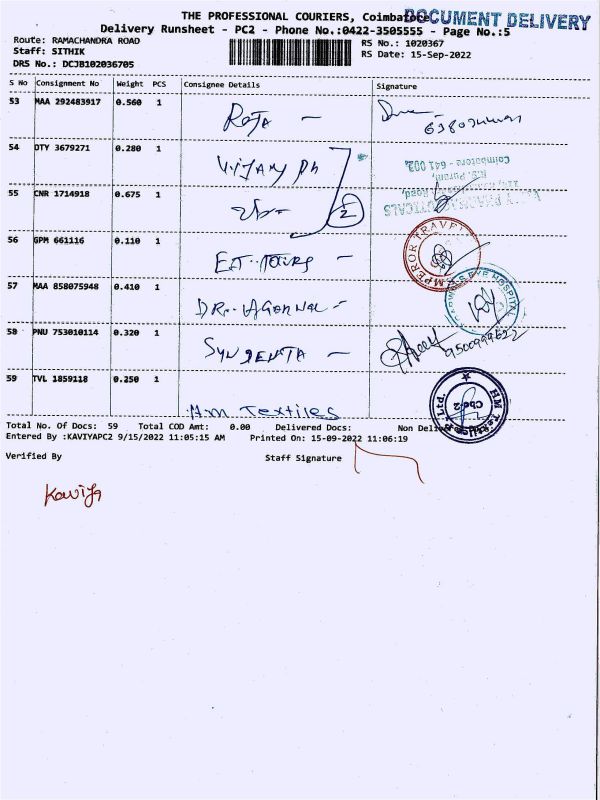 THE PROFESSIONAL COURIERS, Coimbatore
DOCUMENT DELIVERY
Delivery Runsheet - PC2 - Phone No.:0422-3505555 - Page No.:5
Route: RAMACHANDRA ROAD
RS No.: 1020367
Staff: SITHIK
RS Date: 15-Sep-2022
DRS No.: DCJB102036705
S No Consignment No Weight PCS Consignee Details Signature
53 MAA 292483917 0.560 1 Raja
54 OTY 3679271 0.280 1 Vijay Ph
Coimbatore - 641 002.
R.S. Puram,
Road,
55 CNR 1714918 0.675 1 2
56 GPM 661116 0.110 1 E.T. Tours
EMPEROR TRAVEL
57 MAA 858075948 0.410 1 DR. Agarwal
AGARWAL'S EYE HOSPITAL
58 PNU 753010114 0.320 1 SYNGENTA
59 TVL 1859118 0.250 1 H.m Textiles
HM Textiles Ltd. Cbe-2
Total No. Of Docs: 59 Total COD Amt: 0.00 Delivered Docs: Non
Entered By :KAVIYAPC2 9/15/2022 11:05:15 AM Printed On: 15-09-2022 11:06:19
Verified By Staff Signature
Kaviya